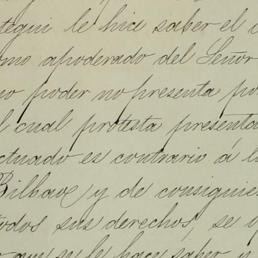 tegui le hice saber el
como apoderado del Señor
poder no presenta po
l cual protesta presenta
ctuado es contrario á l
Bilbao y de consiguie
todos sus derechos, se
que se le hace saber y